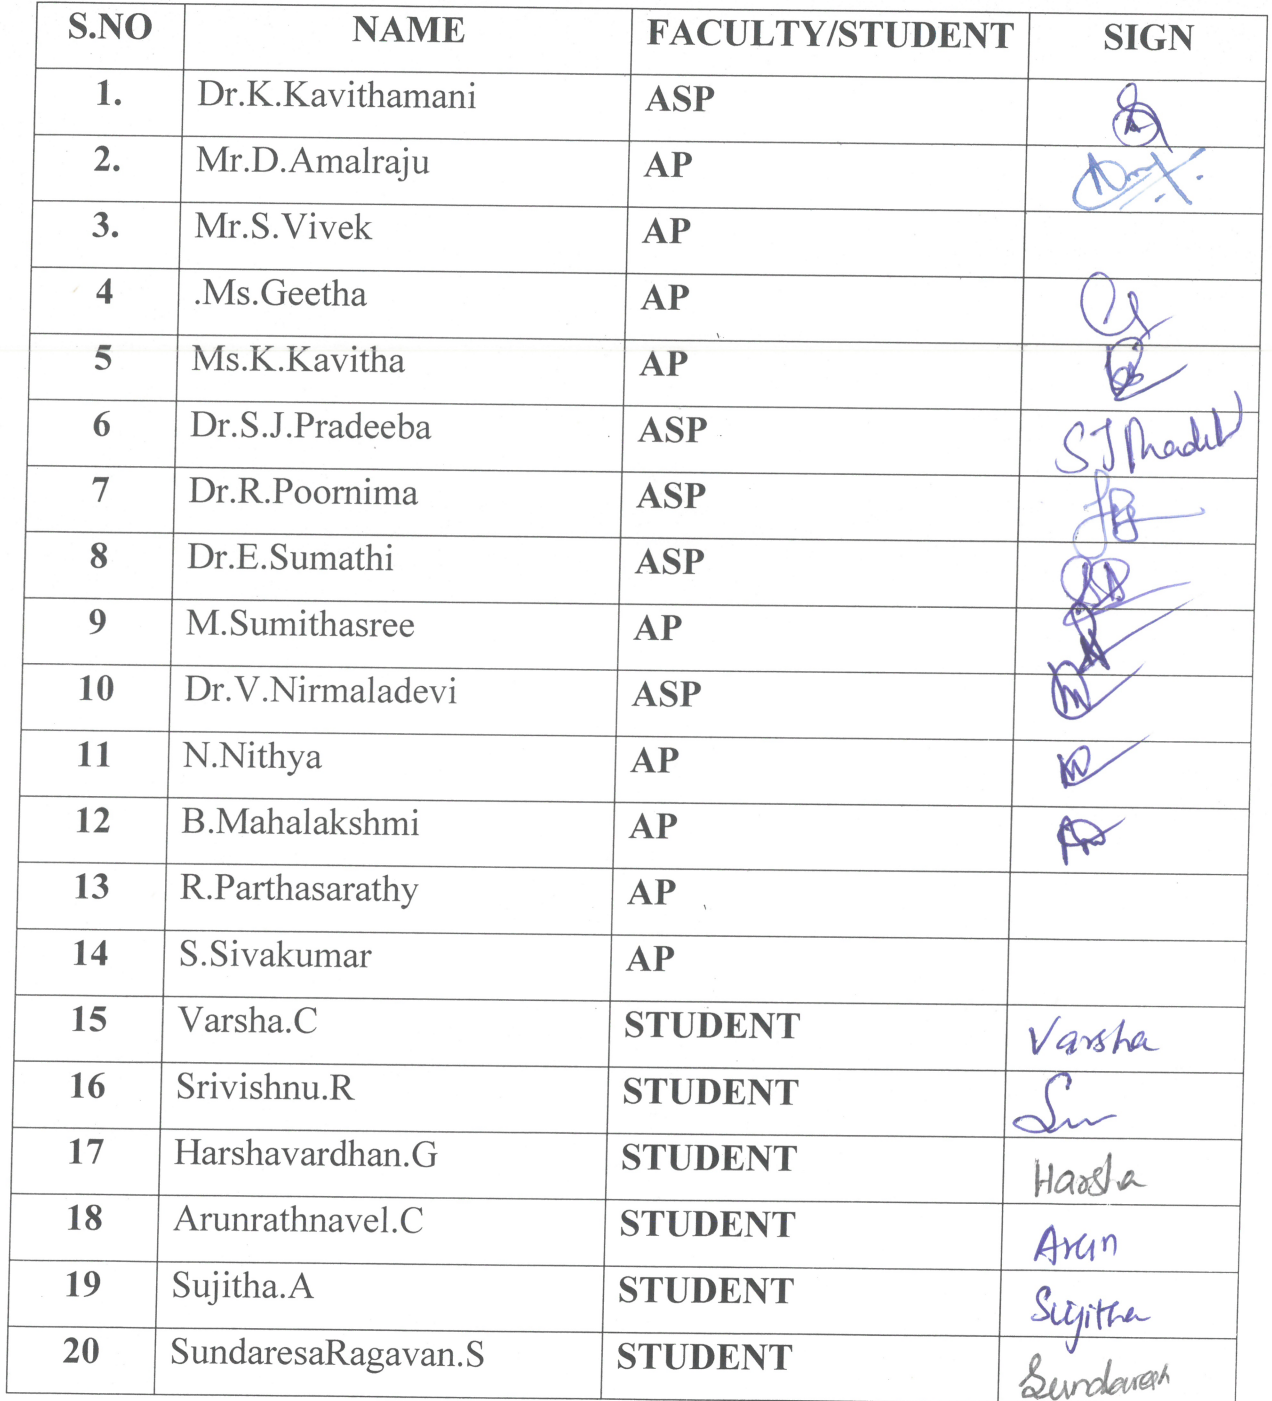 S.NO NAME FACULTY/STUDENT SIGN
1. Dr.K.Kavithamani ASP
2. Mr.D.Amalraju AP
3. Mr.S.Vivek AP
4 .Ms.Geetha AP
5 Ms.K.Kavitha AP
6 Dr.S.J.Pradeeba ASP
7 Dr.R.Poornima ASP
8 Dr.E.Sumathi ASP
9 M.Sumithasree AP
10 Dr.V.Nirmaladevi ASP
11 N.Nithya AP
12 B.Mahalakshmi AP
13 R.Parthasarathy AP
14 S.Sivakumar AP
15 Varsha.C STUDENT Varsha
16 Srivishnu.R STUDENT
17 Harshavardhan.G STUDENT Harsha
18 Arunrathnavel.C STUDENT Arun
19 Sujitha.A STUDENT Sujitha
20 SundaresaRagavan.S STUDENT